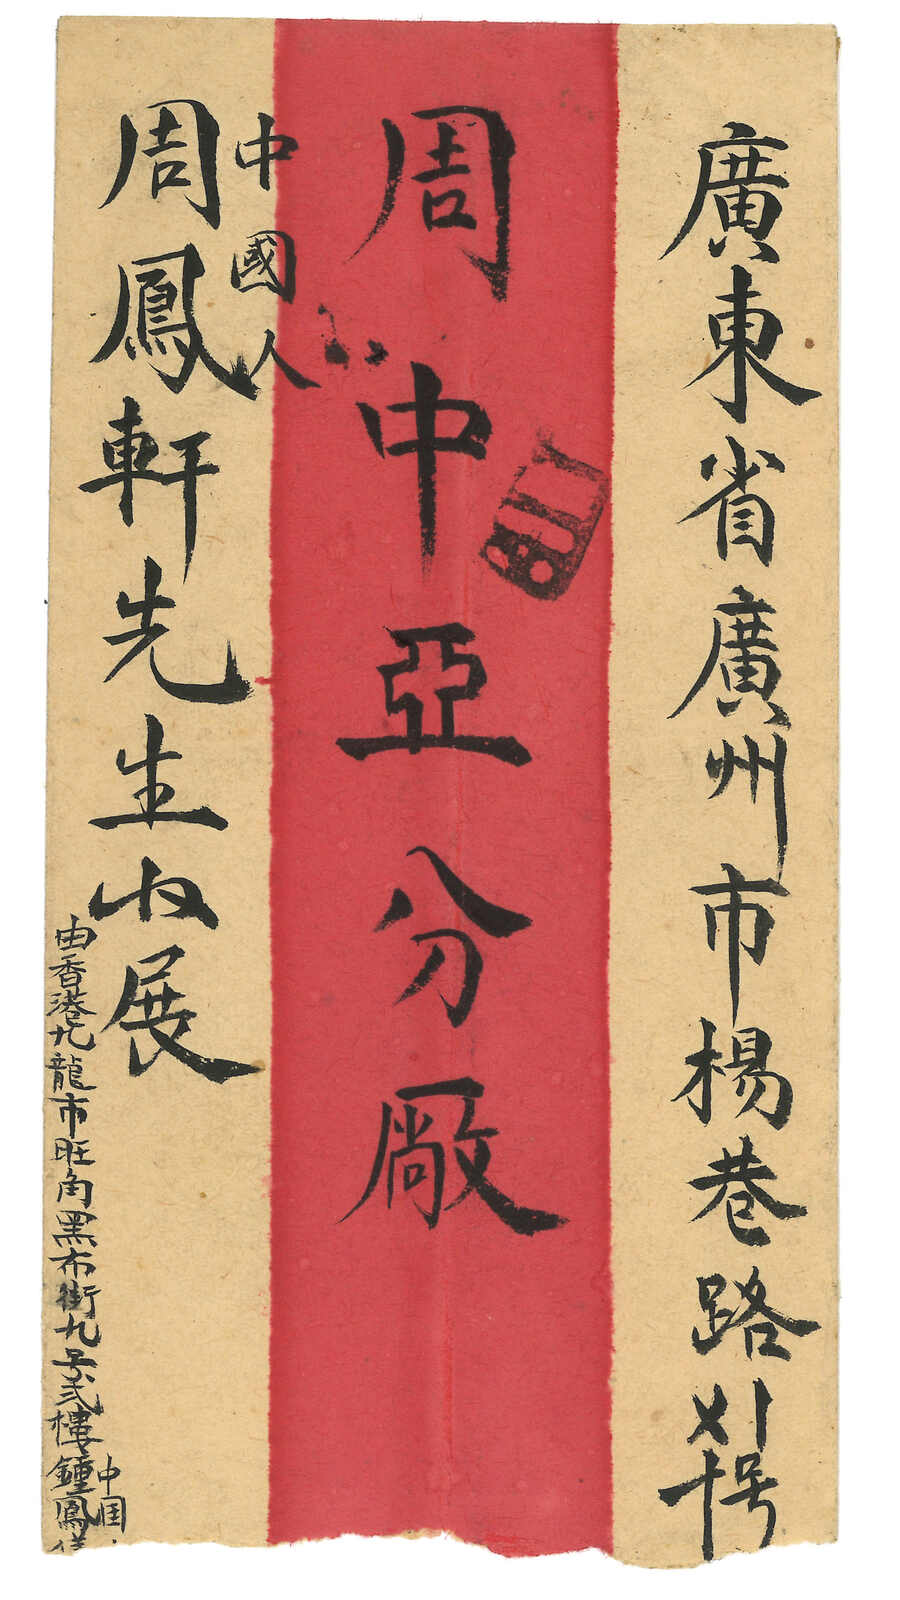 廣東省廣州市楊巷路〤〡十号
周中亞分廠
中國人
周鳳軒先生收展
由香港九龍市旺角黑布街九号弍樓鍾鳳
中国